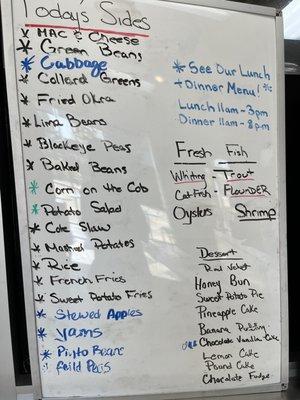 Today's Sides
* Mac & Cheese
* Green Beans
* Cabbage
* Collard Greens
* Fried Okra
* Lima Beans
* Blackeye Peas
* Baked Beans
* Corn on the Cob
* Potato Salad
* Cole Slaw
* Mashed Potatoes
* Rice
* French Fries
* Sweet Potato Fries
* Stewed Apples
* Yams
* Pinto Beans
* Feild Peas
* See Our Lunch
+ Dinner Menu!
Lunch 11am - 3pm
Dinner 11am - 8pm
Fresh Fish
Whiting - Trout
Catfish - Flounder
Oysters Shrimp
Dessert
Red Velvet
Honey Bun
Sweet Potato Pie
Pineapple Cake
Banana Pudding
Chocolate Vanilla Cake
Lemon Cake
Pound Cake
Chocolate Fudge